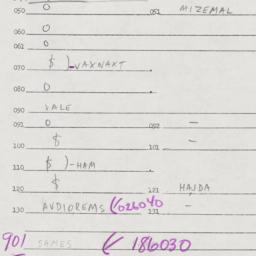 050 O 051 MIZEMAL
060 O
061 O
070 $ )-VAXNAXT
080 O
090 VALE
091 O 092 -
100 $ 101 -
110 $ )-HAM
120 $ 121 HAJDA
130 AVDIOREMS (026040 131 -
901 SAMES ( 186030